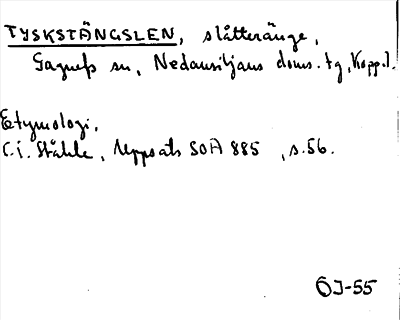 TYSKSTÄNGSLEN, slåtteränge,
Gagnefs sn, Nedansiljans doms. tg, Kopp. l.
Etymologi.
C.I. Ståhle, Uppsats SOA 885, s.56.
ÖJ-55